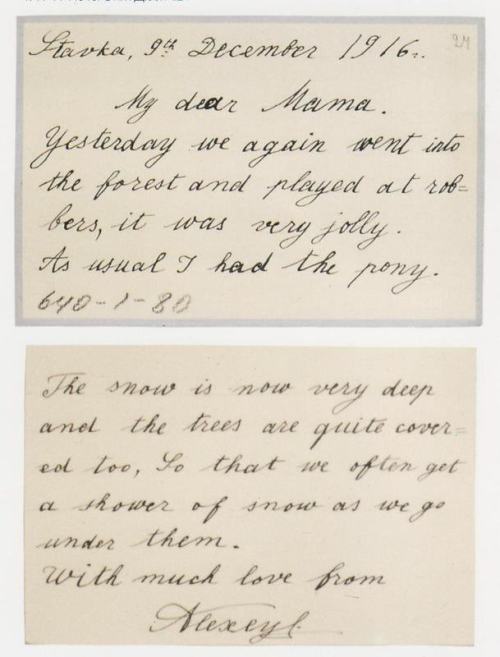 Stavka, 9th December 1916.
24
My dear Mama.
Yesterday we again went into
the forest and played at rob=
bers, it was very jolly.
As usual I had the pony.
640-1-80
The snow is now very deep
and the trees are quite cover=
ed too, So that we often get
a shower of snow as we go
under them.
With much love from
Alexey